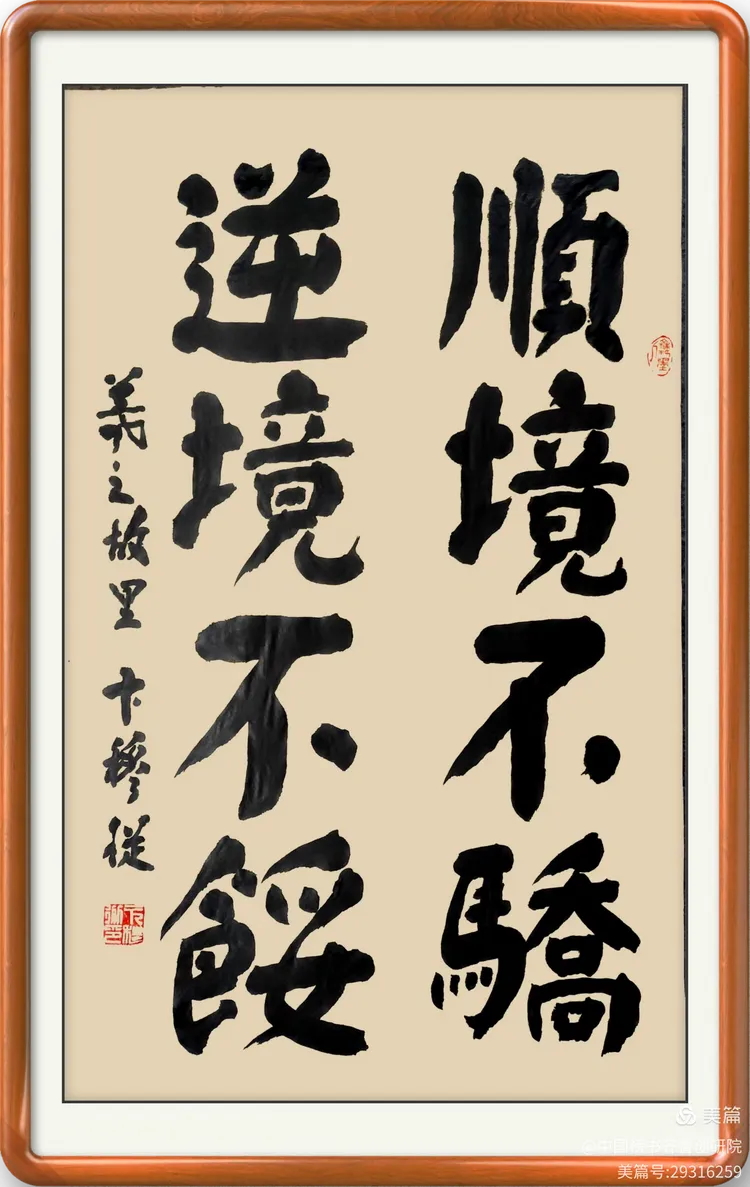 順境不驕
逆境不餒
羲之故里 卞穆從
美篇
美篇号:29316259